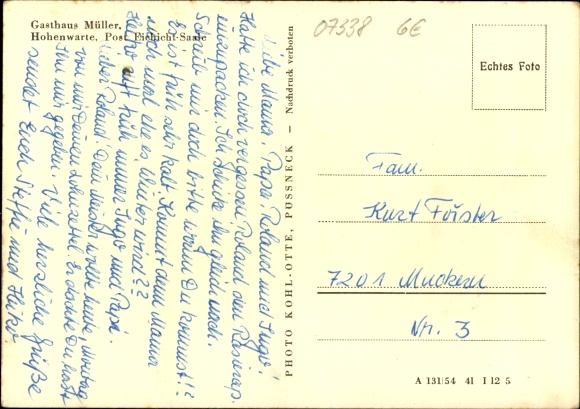 Gasthaus Müller,
Hohenwarte, Post Eichicht-Saale
Liebe Mama, Papa, Roland und Ingo!
Habe ich doch vergessen Roland den
einzupacken. Ich schicke ihn gleich nach.
Schreib mir doch bitte wann Du kommst!?
Es ist früh sehr kalt. Kommt denn Mama
noch mal ehe es Winter wird??
oft früh unser Ingo und Papa.
Lieber Roland! Dein Meister wollte heute, Montag
von mir Deinen . Er dachte Du hast
ihn mir gegeben. Viele herzliche Grüße
sendet Euch Steffi und Heiko.
PHOTO KOHL-OTTE, PÖSSNECK — Nachdruck verboten
07338 6€
Echtes Foto
Fam.
Kurt Förster
7201 Muckern
Nr. 3
A 131/54 41 I 12 5